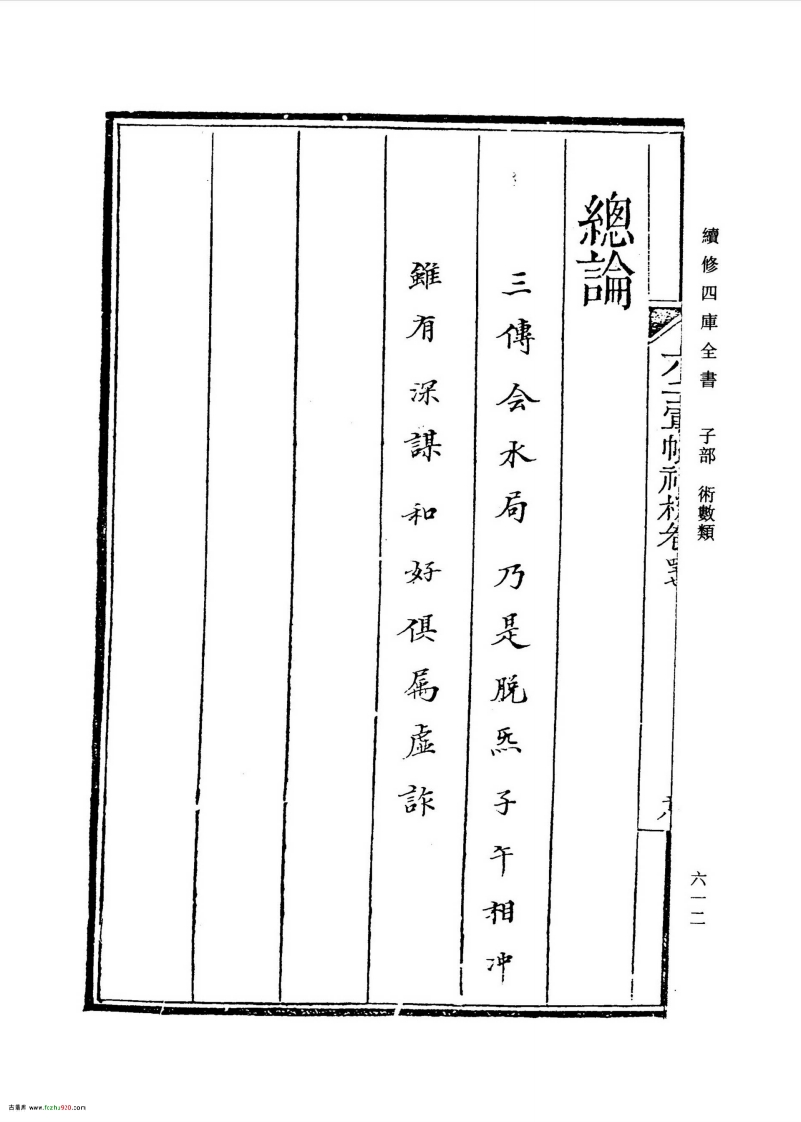 續修四庫全書 子部 術數類
六一二
總論
三傳会水局乃是脫炁子午相冲
雖有深謀和好俱屬虛詐
古籍库 www.fczhu920.com